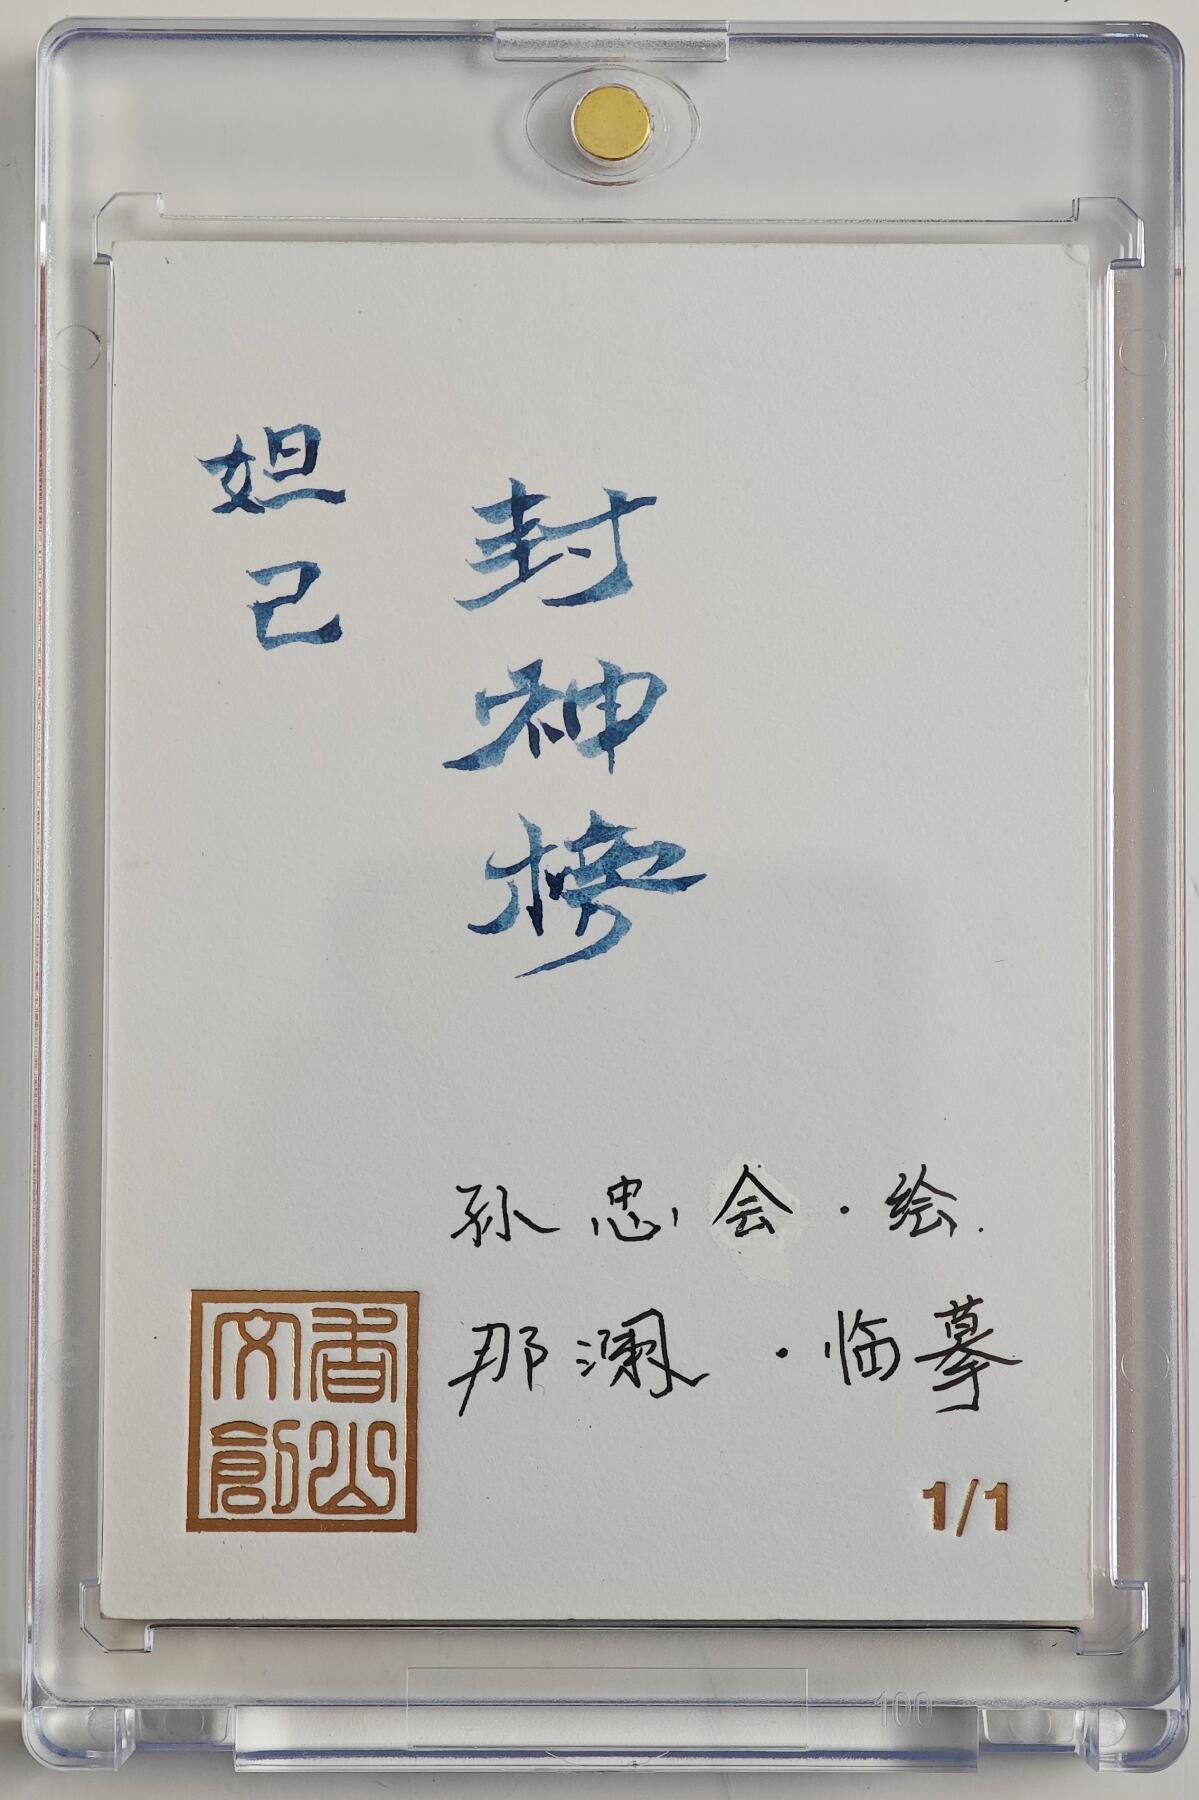 封神榜
妲己
孙忠会·绘.
那澜·临摹
香山文創
1/1
100